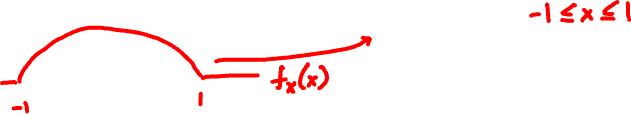 -1 ≤ x ≤ 1
-1
1
fₓ(x)